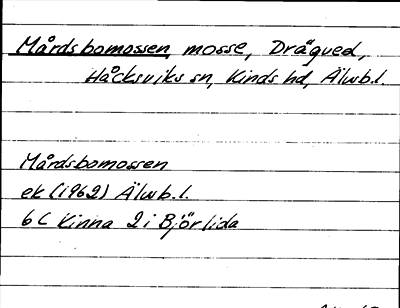 Mårdsbomossen, mosse, Drägved,
Håcksviks sn, Kinds hd, Älvsb.l.
Mårdsbomossen
ek (1962) Älvsb.l.
6C Kinna 2i Björlida